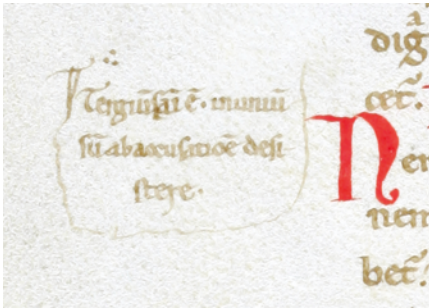 Tergiūsāi ē· inuniū
sū abaccusatiōe desi
stere·
cet̃.
N
er
nem
bet̃.